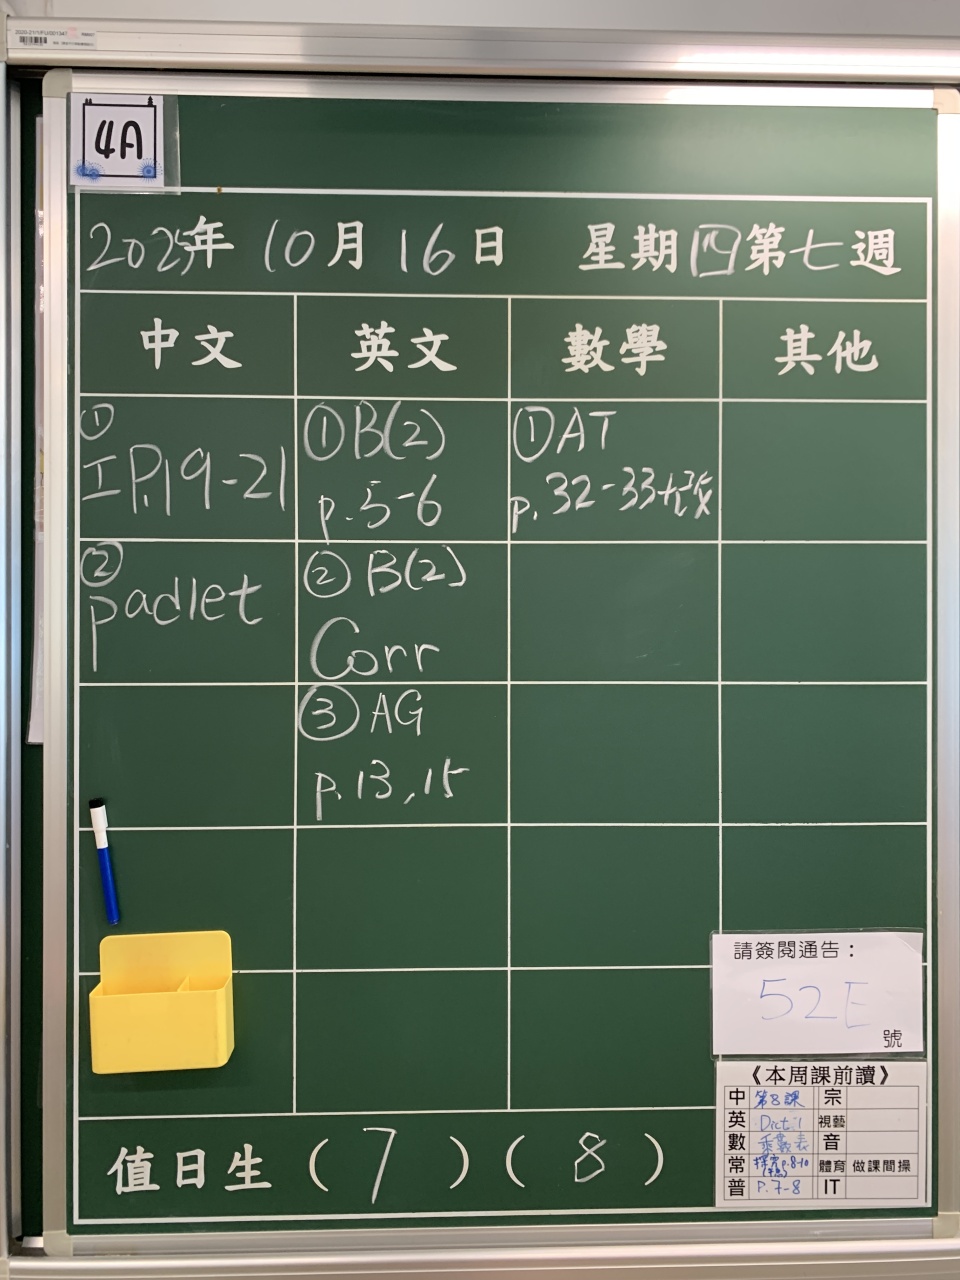 4A
2025年 10月 16日 星期四 第七週
中文 英文 數學 其他
①
工 P.19-21
①B(2)
p.5-6
①AT
p.32-33+改
②
padlet
②B(2)
Corr
③AG
p.13,15
請簽閱通告：
52E
號
《本周課前讀》
中 第8課 宗
英 Dict 1 視藝
數 乘數表 音
常 p.8-10 體育 做課間操
普 P.7-8 IT
值日生（7）（8）